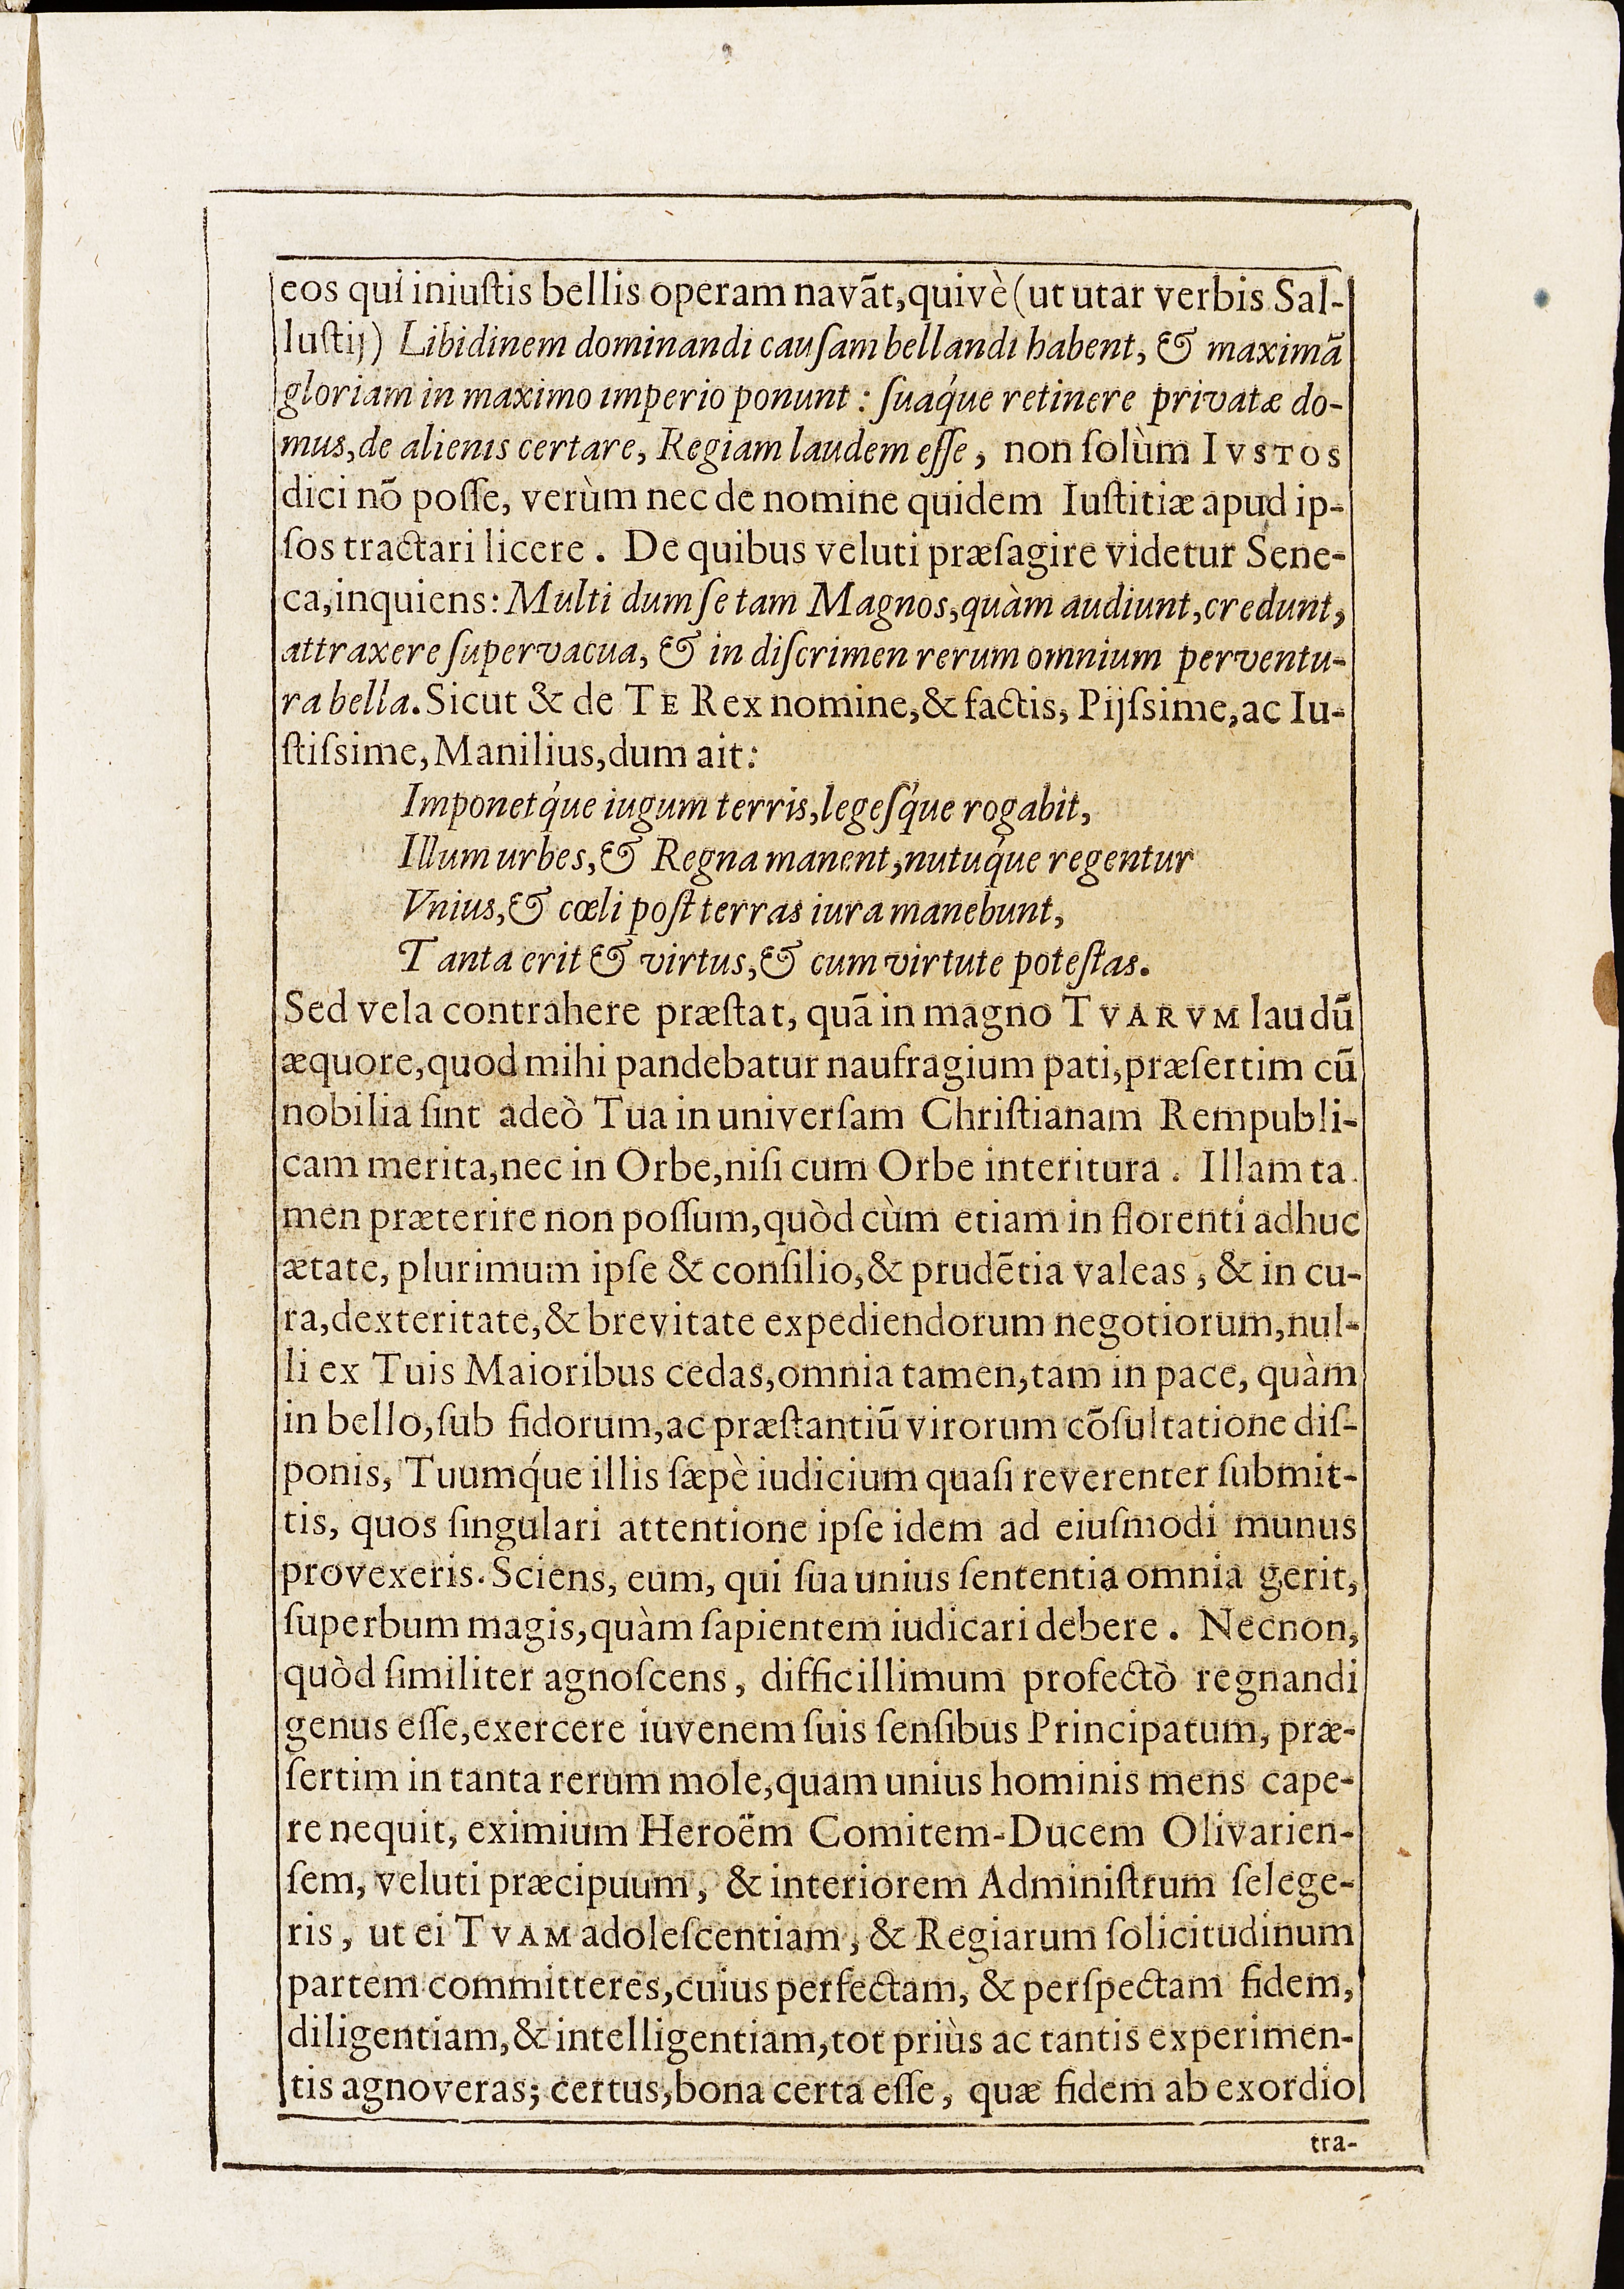 eos qui iniuſtis bellis operam navãt, quivè (ut utar verbis Sal-
luſtij) Libidinem dominandi cauſam bellandi habent, & maximã
gloriam in maximo imperio ponunt: ſuaq́ue retinere privatæ do-
mus, de alienis certare, Regiam laudem eſſe, non ſolùm IVSTOS
dici nõ poſſe, verùm nec de nomine quidem Iuſtitiæ apud ip-
ſos tractari licere. De quibus veluti præſagire videtur Sene-
ca, inquiens: Multi dum ſe tam Magnos, quàm audiunt, credunt,
attraxere ſupervacua, & in diſcrimen rerum omnium perventu-
ra bella. Sicut & de TE Rex nomine, & factis, Pijſsime, ac Iu-
ſtiſsime, Manilius, dum ait:
Imponetq́ue iugum terris, legeſq́ue rogabit,
Illum urbes, & Regna manent, nutuq́ue regentur
Vnius, & cœli poſt terras iura manebunt,
Tanta erit & virtus, & cum virtute poteſtas.
Sed vela contrahere præſtat, quã in magno TVARVM laudũ
æquore, quod mihi pandebatur naufragium pati, præſertim cũ
nobilia ſint adeò Tua in univerſam Chriſtianam Rempubli-
cam merita, nec in Orbe, niſi cum Orbe interitura. Illam ta
men præterire non poſſum, quòd cùm etiam in florenti adhuc
ætate, plurimum ipſe & conſilio, & prudẽtia valeas, & in cu-
ra, dexteritate, & brevitate expediendorum negotiorum, nul-
li ex Tuis Maioribus cedas, omnia tamen, tam in pace, quàm
in bello, ſub fidorum, ac præſtantiũ virorum cõſultatione diſ-
ponis, Tuumq́ue illis ſæpè iudicium quaſi reverenter ſubmit-
tis, quos ſingulari attentione ipſe idem ad eiuſmodi munus
provexeris. Sciens, eum, qui ſua unius ſententia omnia gerit,
ſuperbum magis, quàm ſapientem iudicari debere. Necnon,
quòd ſimiliter agnoſcens, difficillimum profectò regnandi
genus eſſe, exercere iuvenem ſuis ſenſibus Principatum, præ-
ſertim in tanta rerum mole, quam unius hominis mens cape-
re nequit, eximium Heroëm Comitem-Ducem Olivarien-
ſem, veluti præcipuum, & interiorem Adminiſtrum ſelege-
ris, ut ei TVAM adoleſcentiam, & Regiarum ſolicitudinum
partem committeres, cuius perfectam, & perſpectam fidem,
diligentiam, & intelligentiam, tot priùs ac tantis experimen-
tis agnoveras; certus, bona certa eſſe, quæ fidem ab exordio
tra-